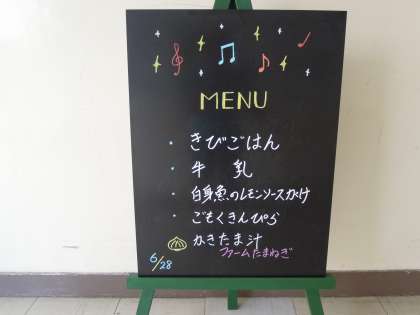 MENU
・きびごはん
・牛 乳
・白身魚のレモンソースかけ
・ごもくきんぴら
かきたま汁
ファームたまねぎ
6/28